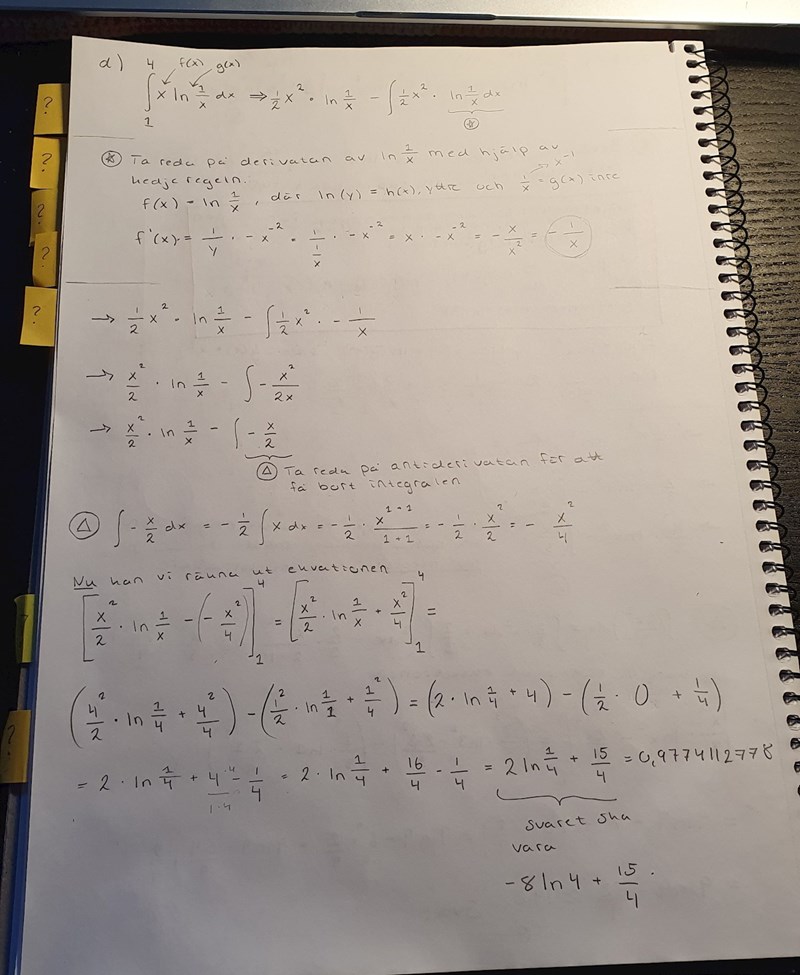 d) ∫₁⁴ x ln 1/x dx ⇒ 1/2 x² · ln 1/x - ∫ 1/2 x² · ln 1/x dx
f(x) g(x)
☆
☆ Ta reda på derivatan av ln 1/x med hjälp av
kedjeregeln.
f(x) = ln 1/x, där ln(y) = h(x), yttre och 1/x = g(x) inre
→ x⁻¹
f'(x) = 1/y · -x⁻² = 1/(1/x) · -x⁻² = x · -x⁻² = - x/x² = - 1/x
→ 1/2 x² · ln 1/x - ∫ 1/2 x² · - 1/x
→ x²/2 · ln 1/x - ∫ - x²/2x
→ x²/2 · ln 1/x - ∫ - x/2
△ Ta reda på antiderivatan för att
få bort integralen
△ ∫ - x/2 dx = - 1/2 ∫ x dx = - 1/2 · x¹⁺¹/1+1 = - 1/2 · x²/2 = - x²/4
Nu kan vi räkna ut ekvationen
[x²/2 · ln 1/x - (- x²/4)]₁⁴ = [x²/2 · ln 1/x + x²/4]₁⁴ =
(4²/2 · ln 1/4 + 4²/4) - (1²/2 · ln 1/1 + 1²/4) = (2 · ln 1/4 + 4) - (1/2 · 0 + 1/4)
= 2 · ln 1/4 + 4·4/1·4 - 1/4 = 2 · ln 1/4 + 16/4 - 1/4 = 2 ln 1/4 + 15/4 = 0,9774112778
svaret ska
vara
-8 ln 4 + 15/4.
?
?
?
?
?
?
?